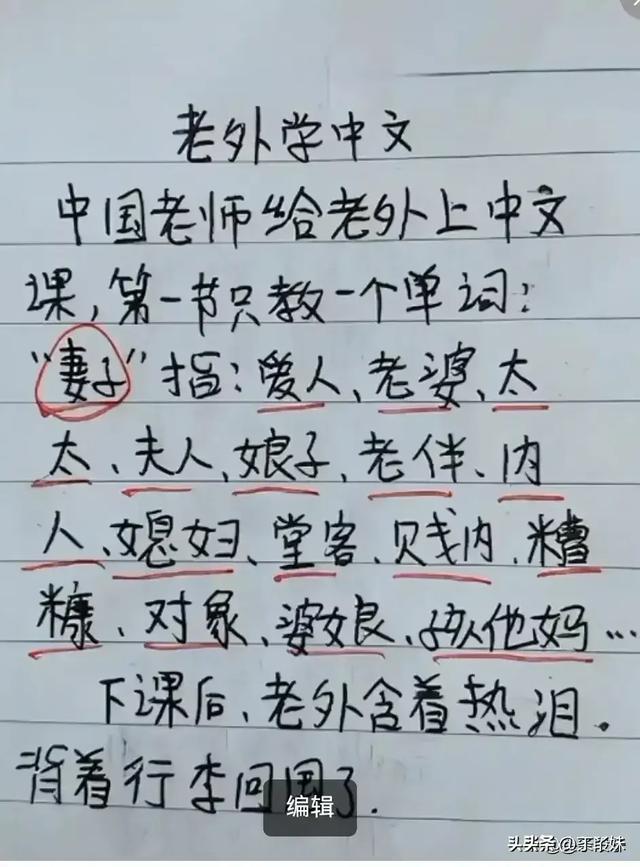 老外学中文
中国老师给老外上中文
课,第一节只教一个单词:
"妻子"指:爱人、老婆、太
太、夫人、娘子、老伴、内
人、媳妇、堂客、贱内、糟
糠、对象、婆娘、孩他妈…
下课后、老外含着热泪.
背着行李回国了.
编辑
头条 @